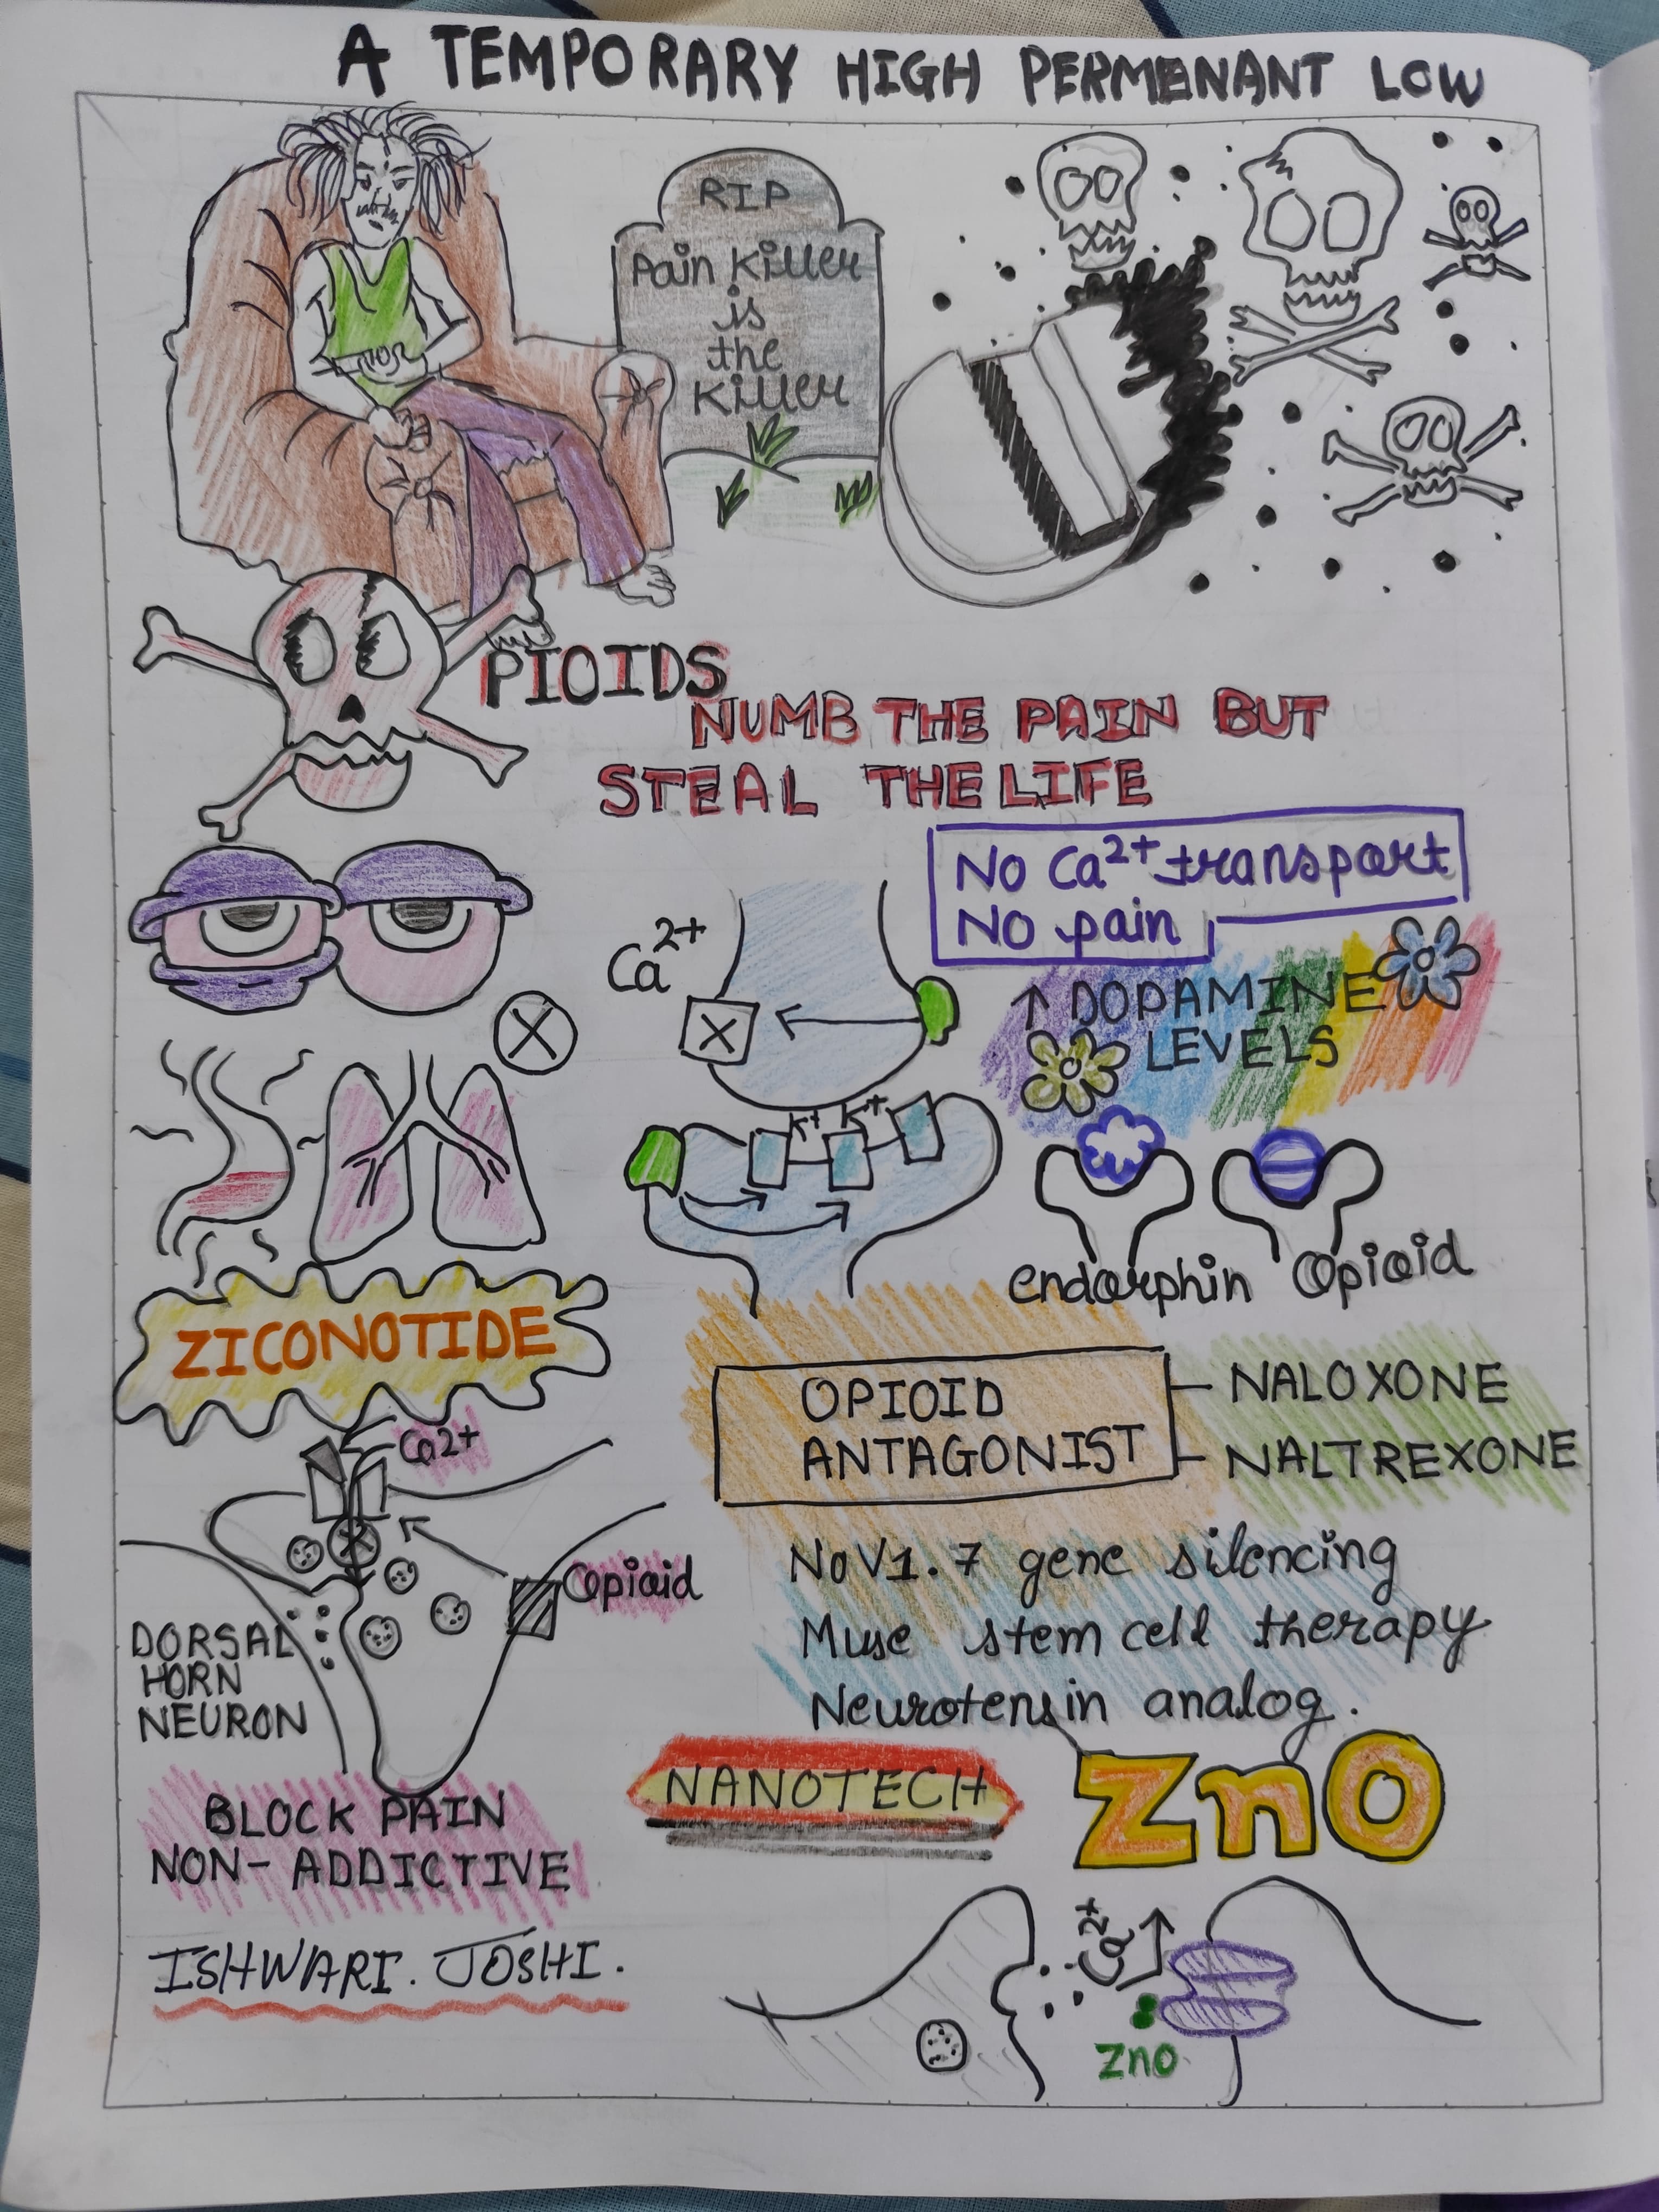 A TEMPORARY HIGH PERMENANT LOW
RIP
Pain Killer
is
the
Killer
PIOIDS
NUMB THE PAIN BUT
STEAL THE LIFE
No Ca²⁺ transport
No pain
Ca²⁺
↑ DOPAMINE
LEVELS
K⁺ K⁺
endorphin Opioid
ZICONOTIDE
Ca2+
Opioid
DORSAL
HORN
NEURON
BLOCK PAIN
NON-ADDICTIVE
ISHWARI. JOSHI.
OPIOID
ANTAGONIST
NALOXONE
NALTREXONE
NoV1.7 gene silencing
Muse stem cell therapy
Neurotensin analog.
NANOTECH
ZnO
Ca²⁺
ZnO